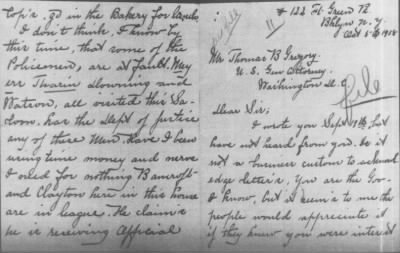 # 122 Ft. Green Pl
Bklyn N.Y.
Oct 5th 1918
Mr Thomas B Gregory
U.S. Gen Attorney
Washington D.C.
file
Dear Sir;
I wrote you Sept 19th, but
have not heard from you. Is it
not a business custom to acknowl
edge letter's. You are the Gov.
I know, but it seem's to me the
people would appreciate it
if they knew you were interest
Cop's. go in the Bakery for
I don't think, I know by
this time, that some of the
Policemen, are at fault. May
err Downing and
Watson, all visited this Sa-
loon. has the Dept of Justice
any of these Men. Have I been
using time money and nerve
I oiled for nothing Bancroft
and Clayton here in this house
are in league. He claim's
he is receiving Official